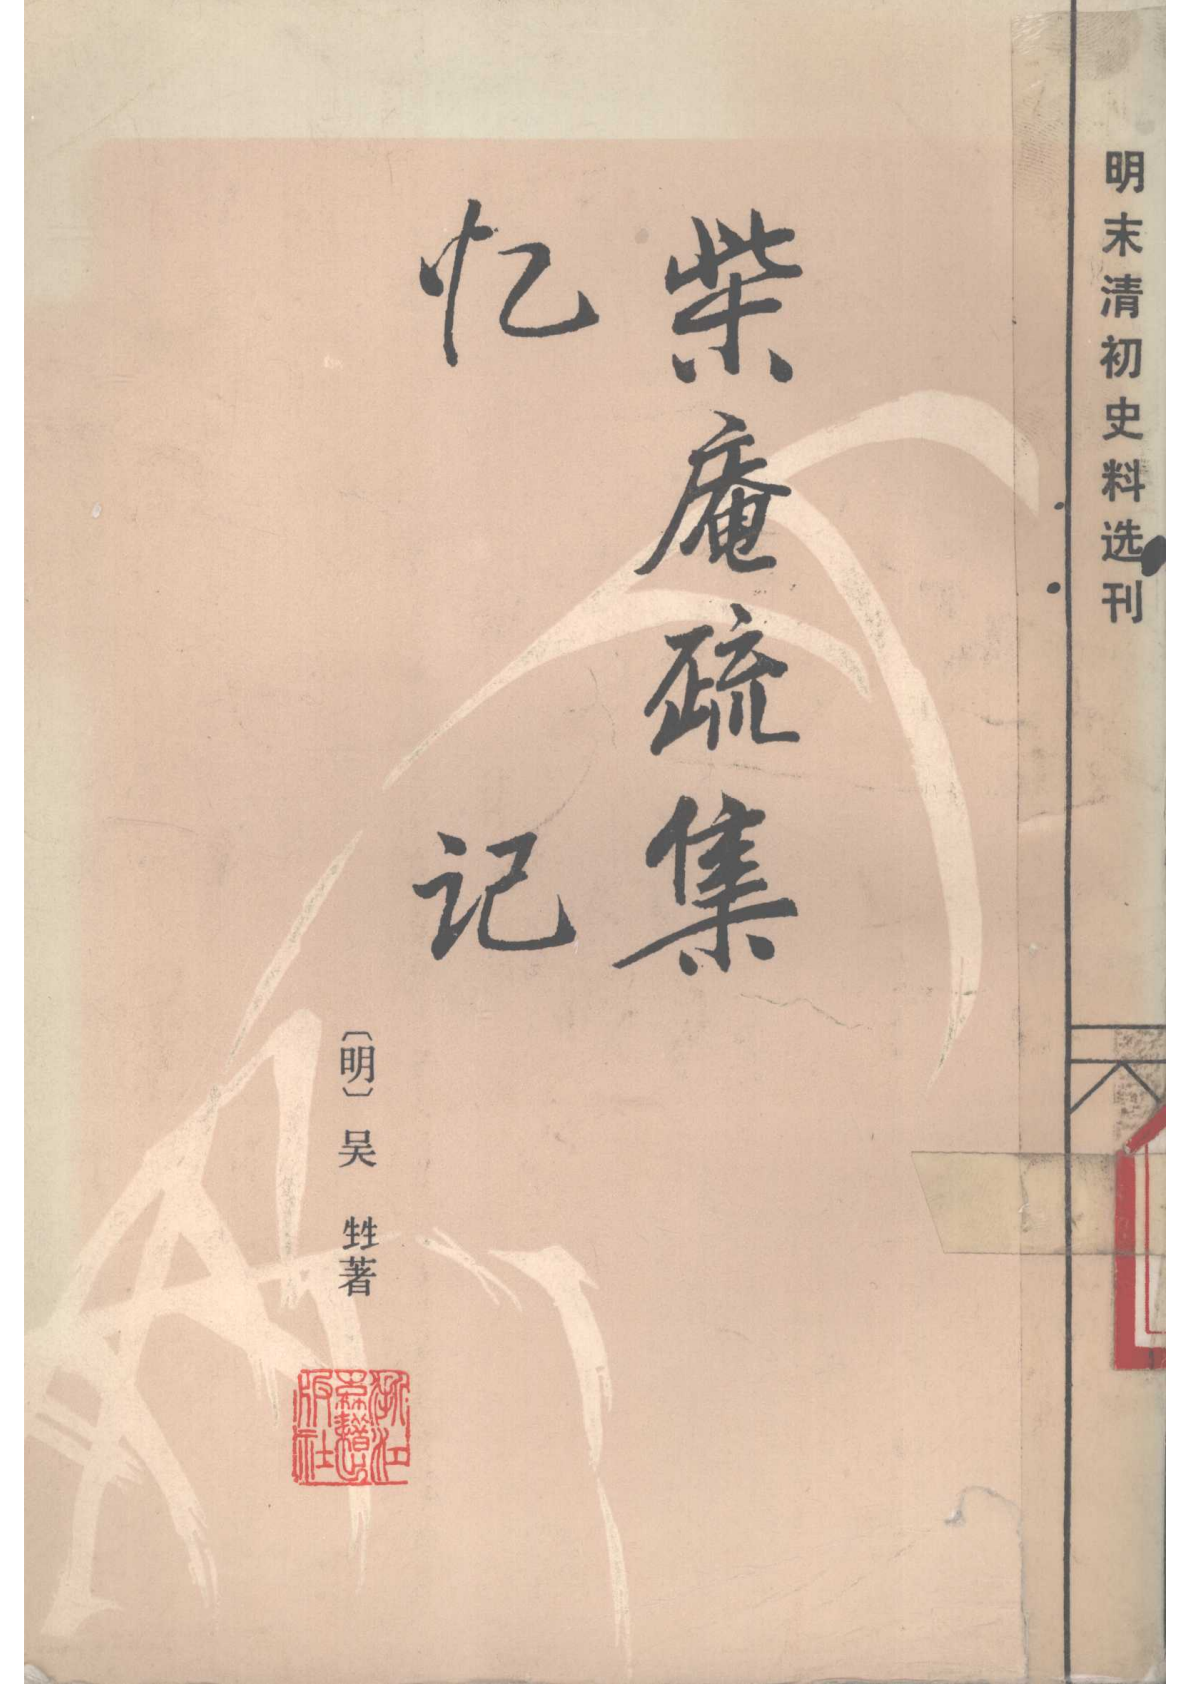 明末清初史料选刊
柴庵疏集
忆记
〔明〕吴甡著
浙江
古籍
出版社